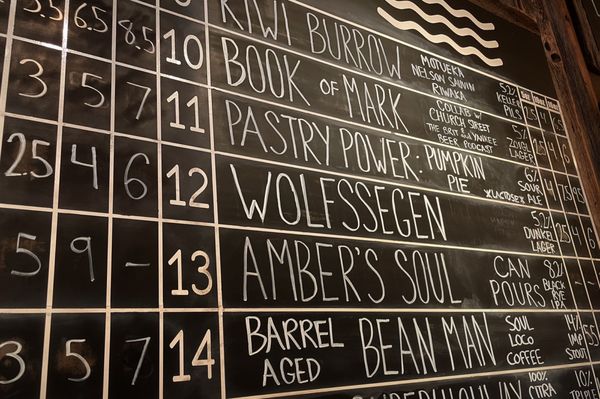 .5 6.5 8.5
KIWI BURROW MOTUEKA NELSON SAUVIN RIWAKA 5.2% KELLER PILS
10 BOOK OF MARK COLLAB W/ CHURCH STREET THE BRIT & YANKEE BEER PODCAST 5% ZOIGL LAGER
3 5 7 11 PASTRY POWER: PUMPKIN PIE *LACTOSE* 6% SOUR ALE
2.5 4 6 12 WOLFSSEGEN 5.2% DUNKEL LAGER
5 9 – 13 AMBER'S SOUL CAN POURS 8.2% BLACK RYE IPA
3 5 7 14 BARREL AGED BEAN MAN SOUL LOCO COFFEE 14% IMP STOUT
100% CITRA 10%